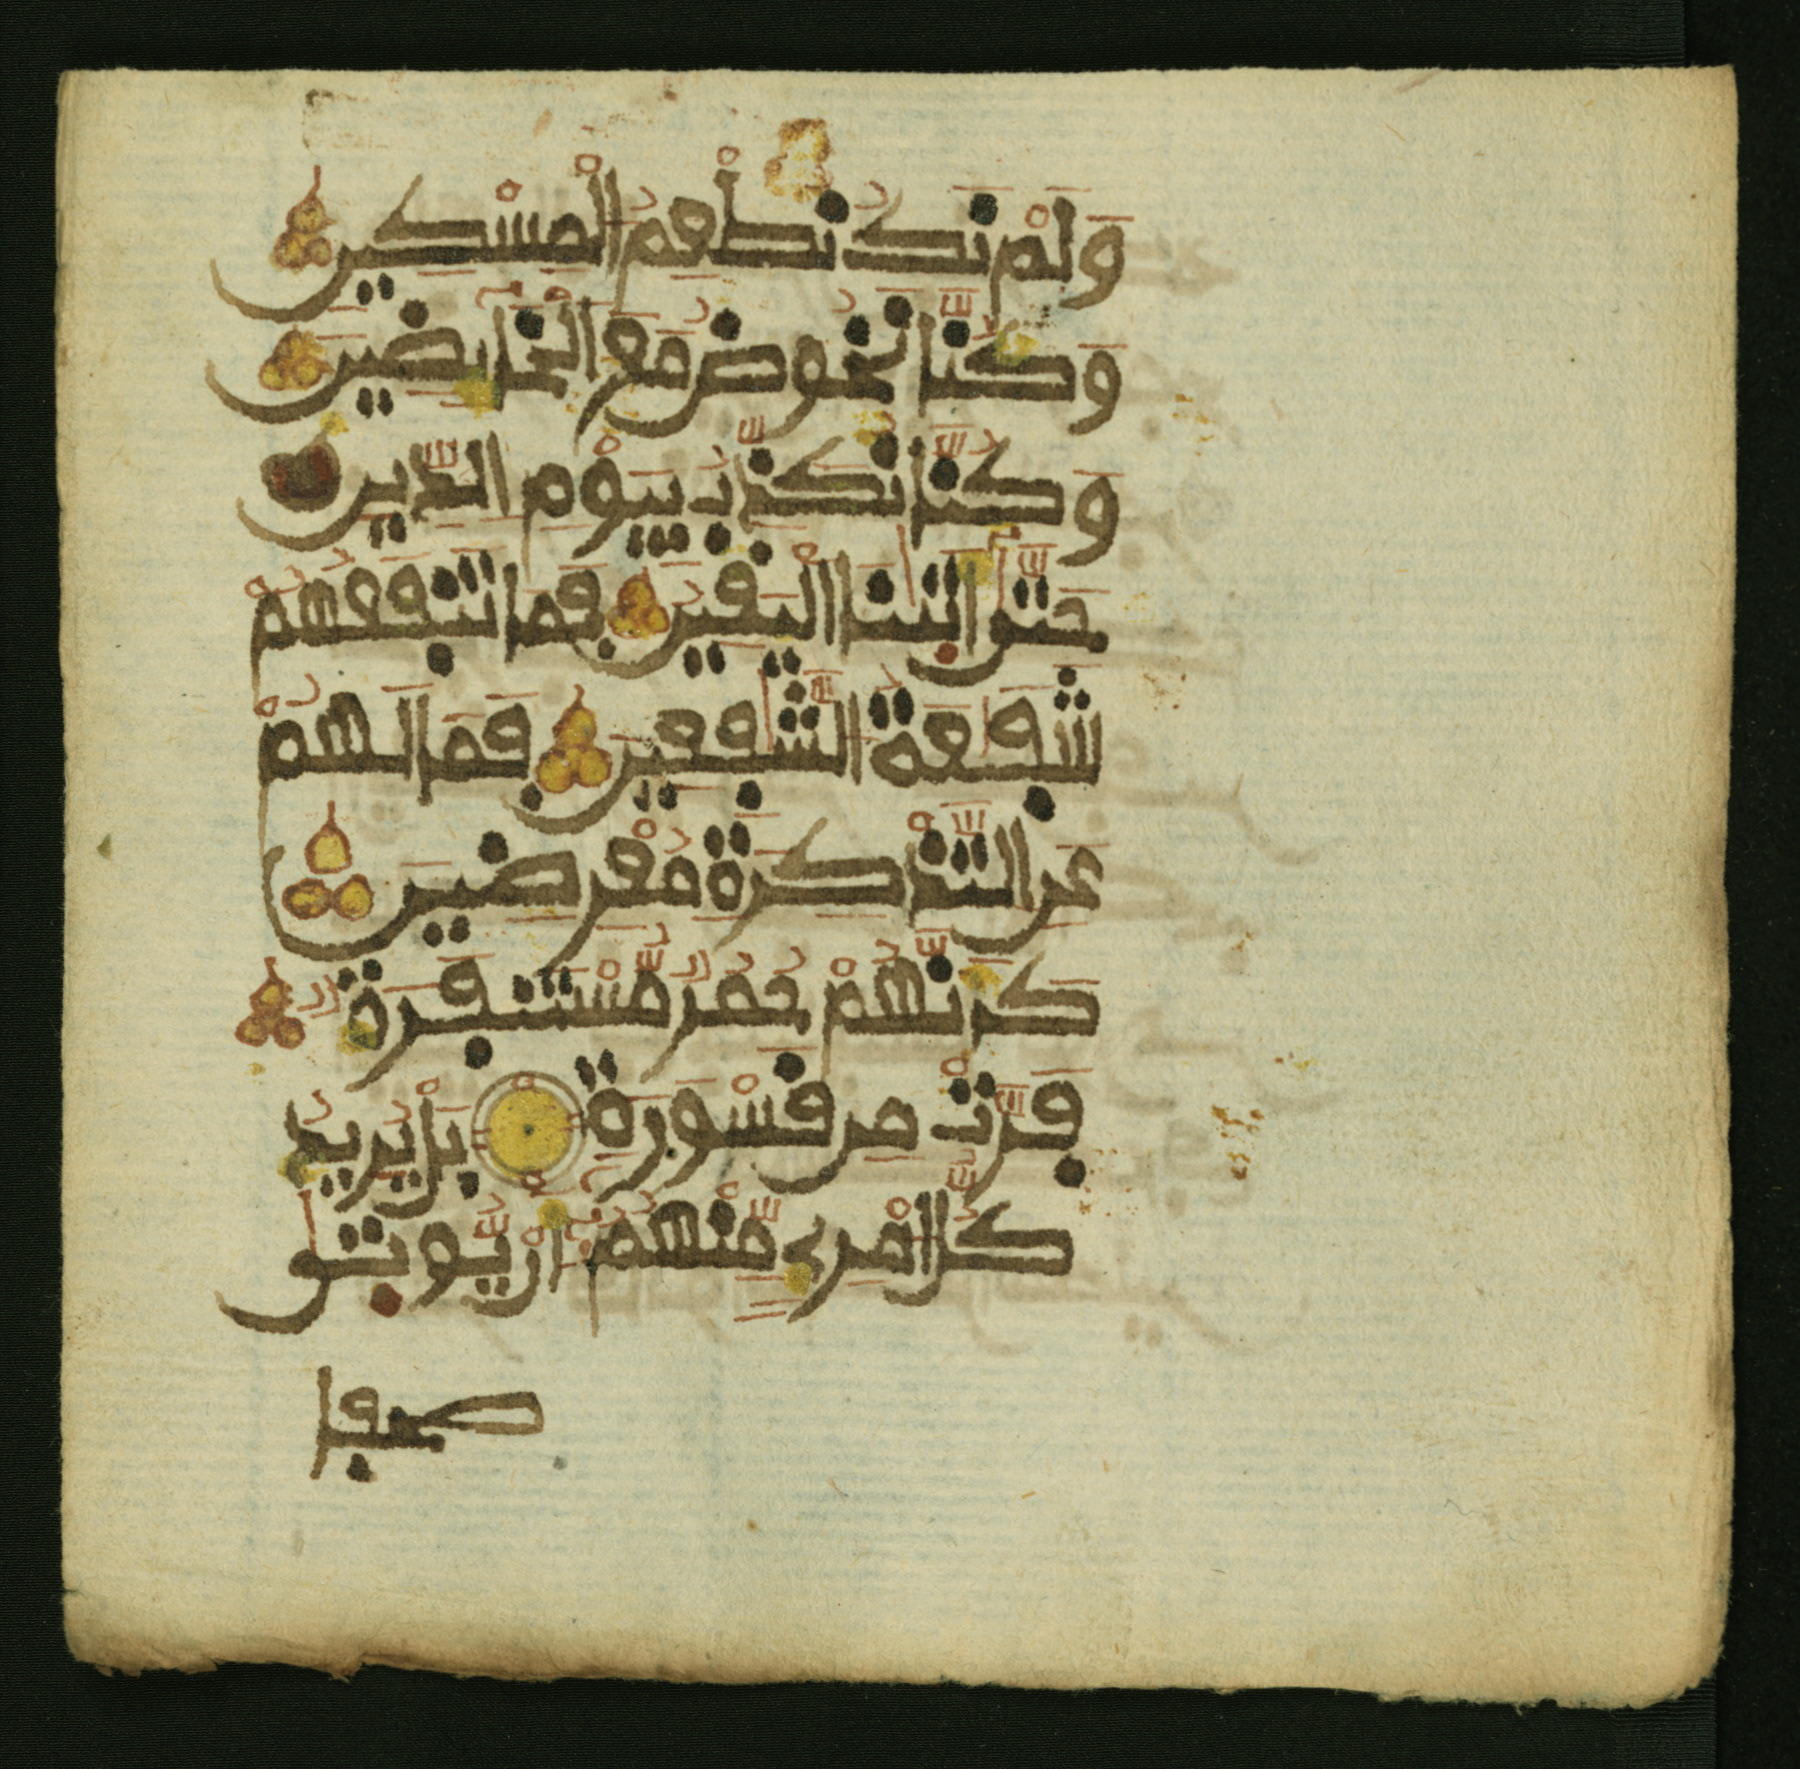 وَلَمْ نَكُ نُطْعِمُ الْمِسْكِينَ
وَكُنَّا نَخُوضُ مَعَ الْخَآئِضِينَ
وَكُنَّا نُكَذِّبُ بِيَوْمِ الدِّينِ
حَتَّىٰ أَتَىٰنَا الْيَقِينُ فَمَا تَنفَعُهُمْ
شَفَٰعَةُ الشَّٰفِعِينَ فَمَا لَهُمْ
عَنِ التَّذْكِرَةِ مُعْرِضِينَ
كَأَنَّهُمْ حُمُرٌ مُّسْتَنفَرَةٌ
فَرَّتْ مِن قَسْوَرَةٍ بَلْ يُرِيدُ
كُلُّ امْرِئٍ مِّنْهُمُ أَنْ يُّوتَىٰ
صحفا